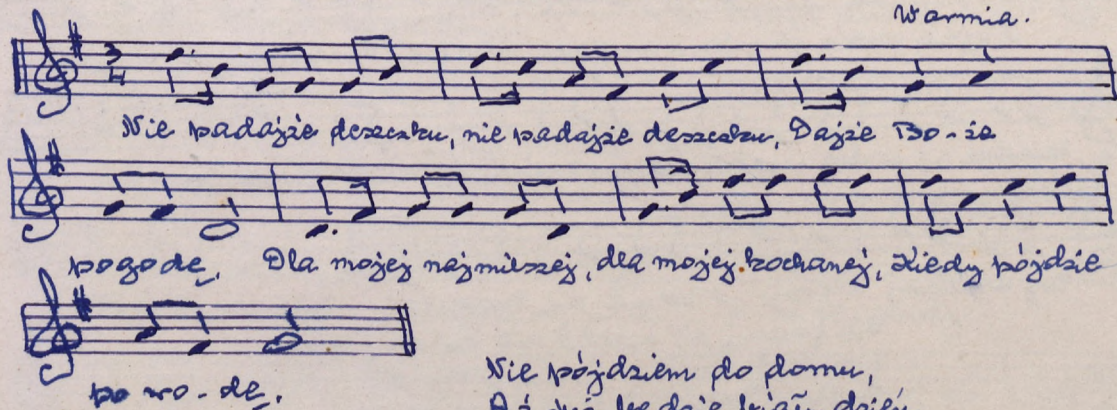 Warmia.
3
4
Nie padajże deszczku, nie padajże deszczku, Dajże Bo-że
pogodę, Dla mojej najmilszej, dla mojej kochanej, Kiedy pójdzie
po wo-dę.
Nie pójdziem do domu,
Aż już będzie biały dzień